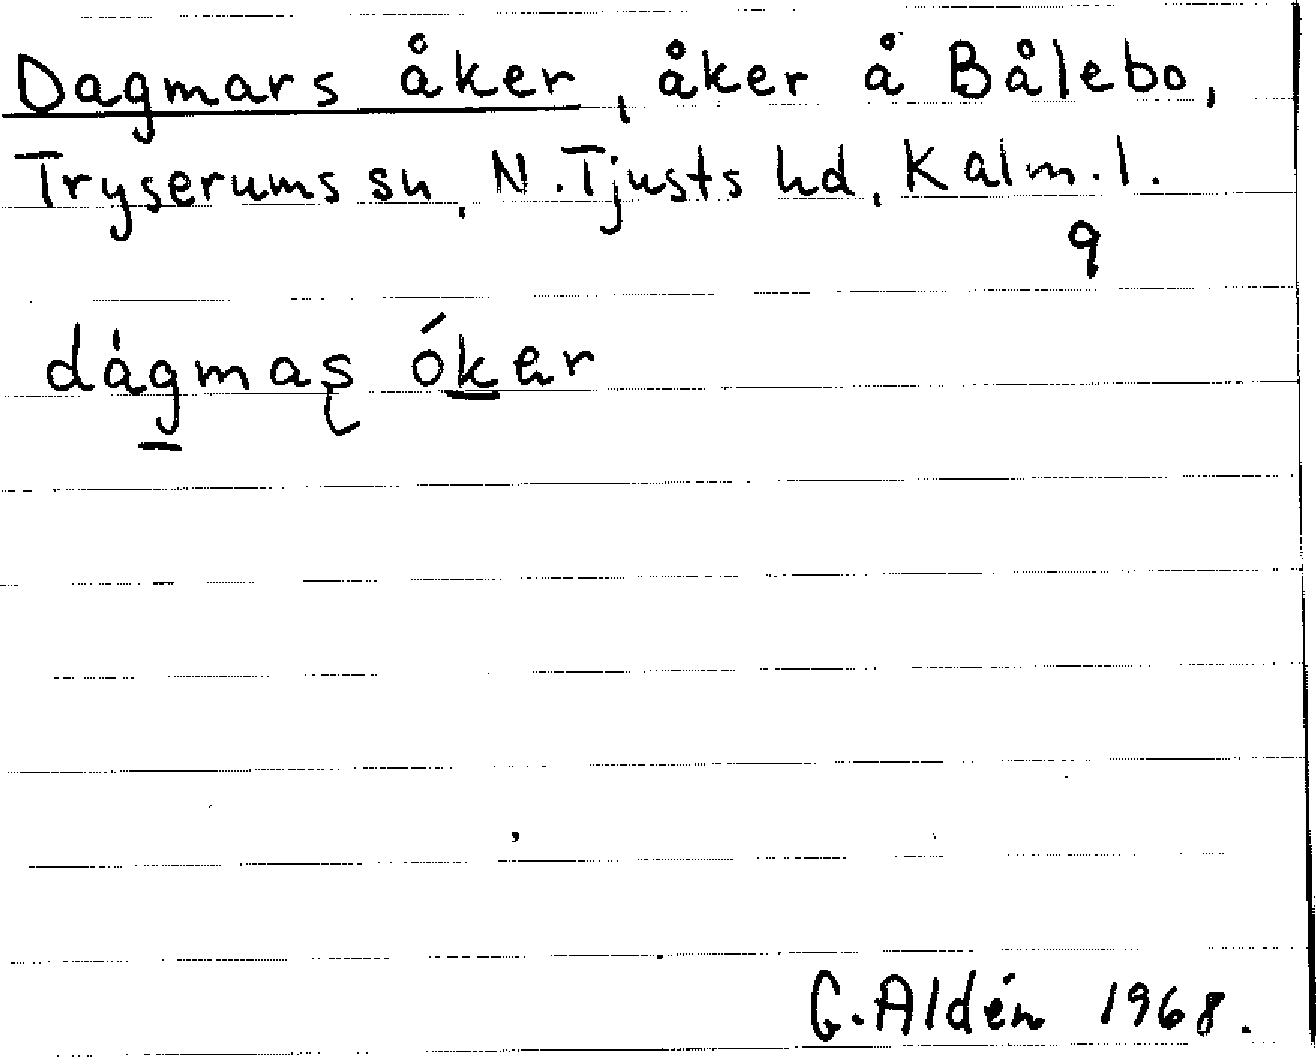 Dagmars åker, åker å Bålebo,
Tryserums sn, N. Tjusts hd, Kalm. l.
9
dágmaş óker
G. Aldén 1968.